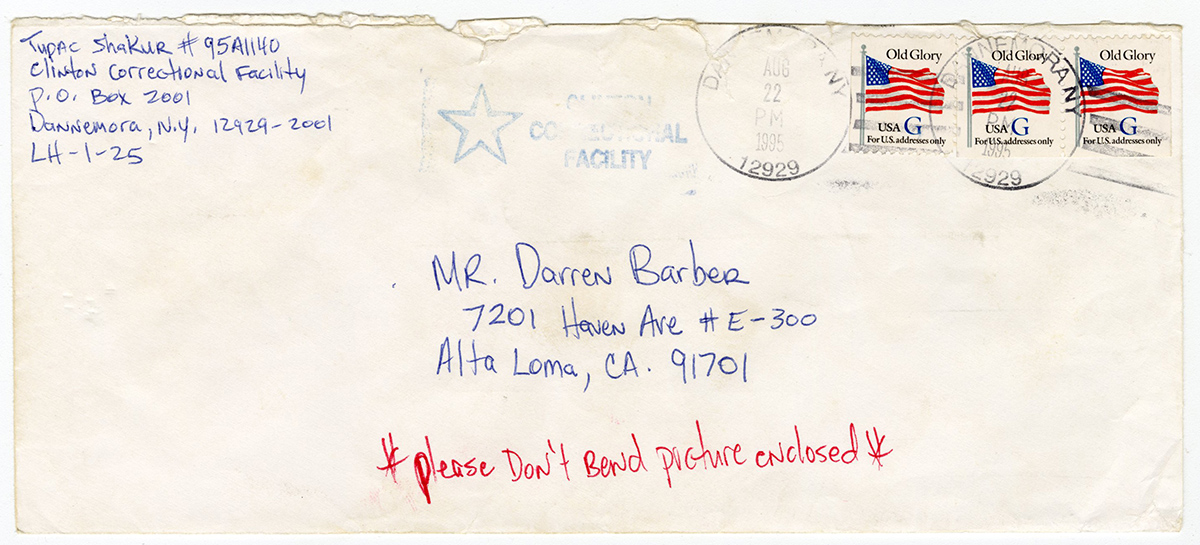 Tupac Shakur # 95A1140
Clinton Correctional Facility
P.O. Box 2001
Dannemora, N.Y. 12929-2001
LH-1-25
CLINTON
CORRECTIONAL
FACILITY
DANNEMORA NY
AUG
22
PM
1995
12929
Old Glory
USA G
For U.S. addresses only
Old Glory
USA G
For U.S. addresses only
Old Glory
USA G
For U.S. addresses only
DANNEMORA NY
AUG
22
PM
1995
12929
MR. Darren Barber
7201 Haven Ave # E-300
Alta Loma, CA. 91701
* please Don't Bend picture enclosed *